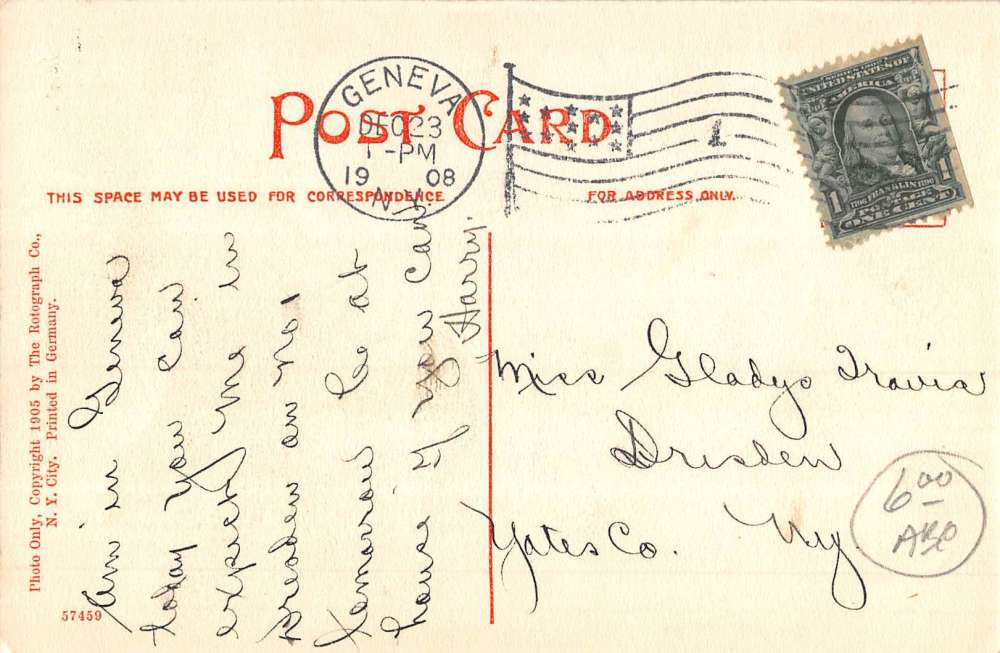 POST CARD
GENEVA
DEC 23
1-PM
1908
N.Y.
1
UNITED STATES OF
AMERICA
1706 FRANKLIN 1790
1 POSTAGE 1
ONE CENT
THIS SPACE MAY BE USED FOR CORRESPONDENCE
FOR ADDRESS ONLY.
Am in Geneva
today you can
expect me in
Dresden on no 1
tomorrow be at
house if you can
Harry.
Miss Gladys Travis
Dresden
Yates Co. Ny.
6 00
ABC
Photo Only, Copyright 1905 by The Rotograph Co.,
N. Y. City. Printed in Germany.
57459